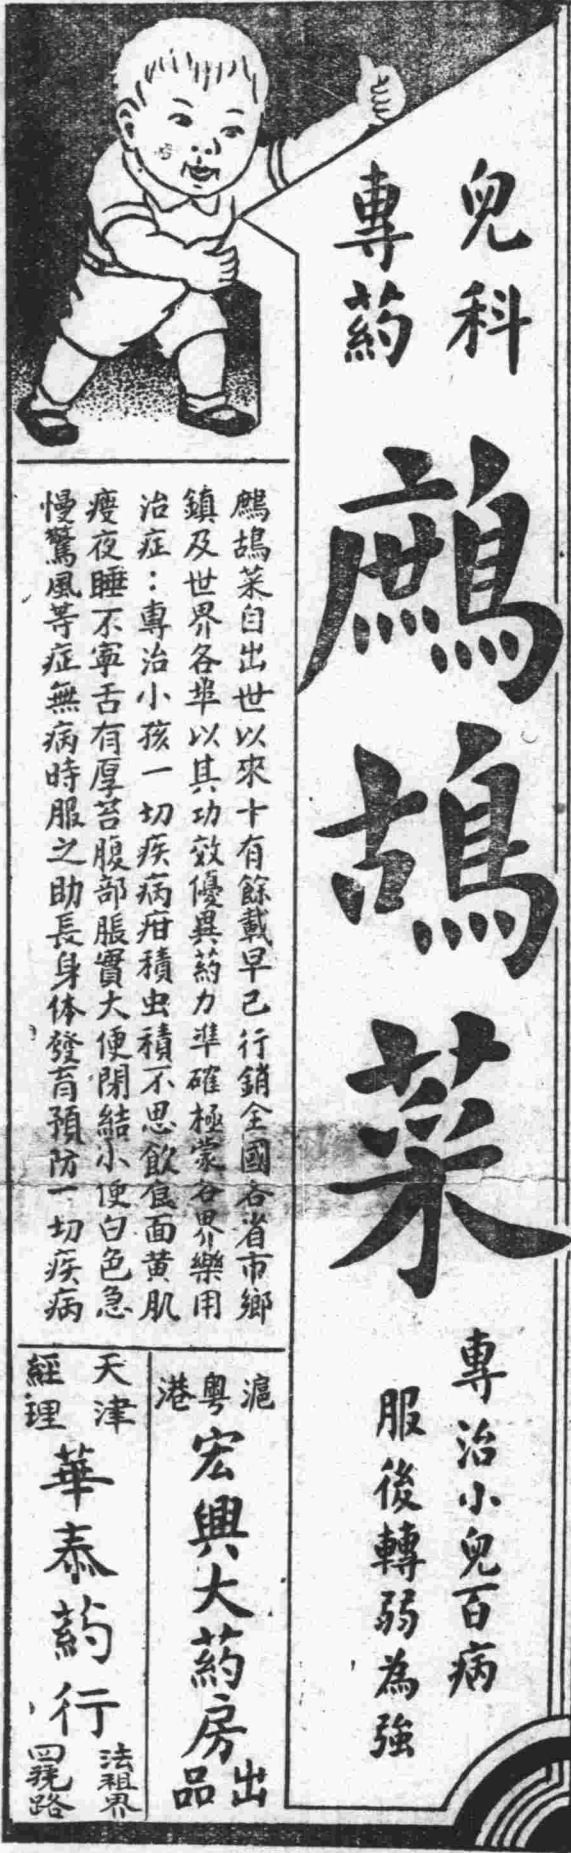 兒科
專药
鷓鴣菜
專治小兒百病
服後轉弱為強
鷓鴣菜自出世以來十有餘載早已行銷全國各省市鄉
鎮及世界各埠以其功效優異药力準確極蒙各界樂用
治症：專治小孩一切疾病疳積虫積不思飲食面黄肌
瘦夜睡不寧舌有厚苔腹部脹實大便閉結小便白色急
慢驚風等症無病時服之助長身体發育預防一切疾病
滬
粵
港
宏興大药房
出品
天津
經理
華泰药行
法租界
四號路